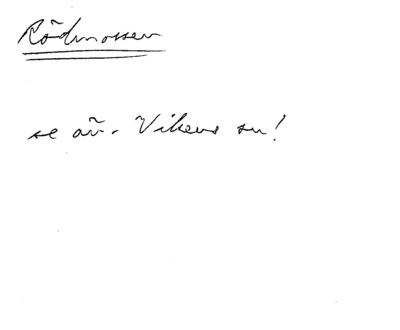 Rödmossen
se äv. Vikens sn!